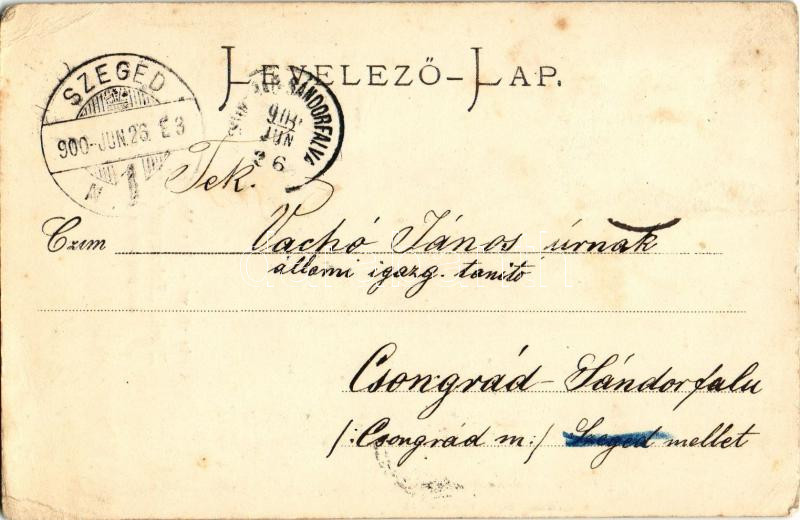 LEVELEZŐ-LAP.
SZEGED
900-JUN.26. E3
N 1
SÁNDORFALVA
900
JUN
26
Tek.
Czim Vachó János úrnak
állami igazg. tanitó
Csongrád-Sándorfalu
/: Csongrád m:/ Szeged mellet